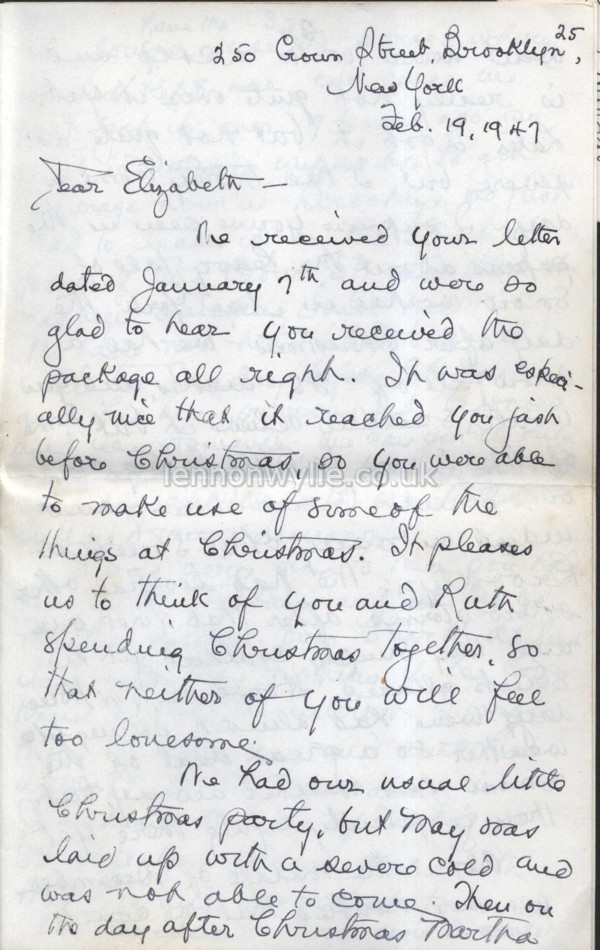 250 Crown Street Brooklyn 25,
New York
Feb. 19, 1947
Dear Elizabeth —
We received your letter
dated January 7th and were so
glad to hear you received the
package all right. It was especi-
ally nice that it reached you just
before Christmas so you were able
lennonwylie.co.uk
to make use of some of the
things at Christmas. It pleases
us to think of you and Ruth
spending Christmas together, so
that neither of you will feel
too lonesome
We had our usual little
Christmas party, but May was
laid up with a severe cold and
was not able to come. Then on
the day after Christmas Martha